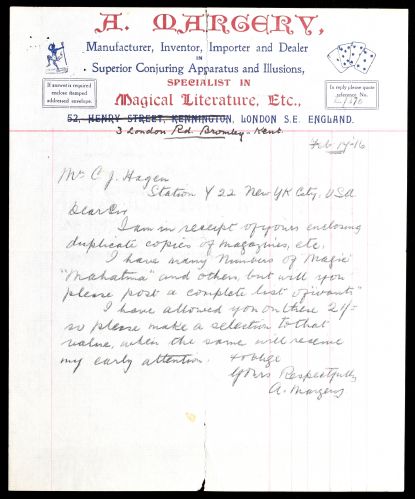 A. MARGERY,
Manufacturer, Inventor, Importer and Dealer
IN
Superior Conjuring Apparatus and Illusions,
SPECIALIST IN
Magical Literature, Etc.,
If answer is required
enclose stamped
addressed envelope.
In reply please quote
reference No.
52, HENRY STREET, KENNINGTON, LONDON S.E. ENGLAND.
3 London Rd. Bromley - Kent.
Feb 17-16
Mr C. J. Hagen
Station Y 22 New YK City, USA
Dear Sir
I am in receipt of yours enclosing
duplicate copies of magazines, etc.
I have many Numbers of Magic
"Mahatma" and others, but will you
please post a complete list of "wants"
I have allowed you on these 2/-
so please make a selection to that
value, when the same will receive
my early attention. & oblige
Yours Respectfully
A. Margery